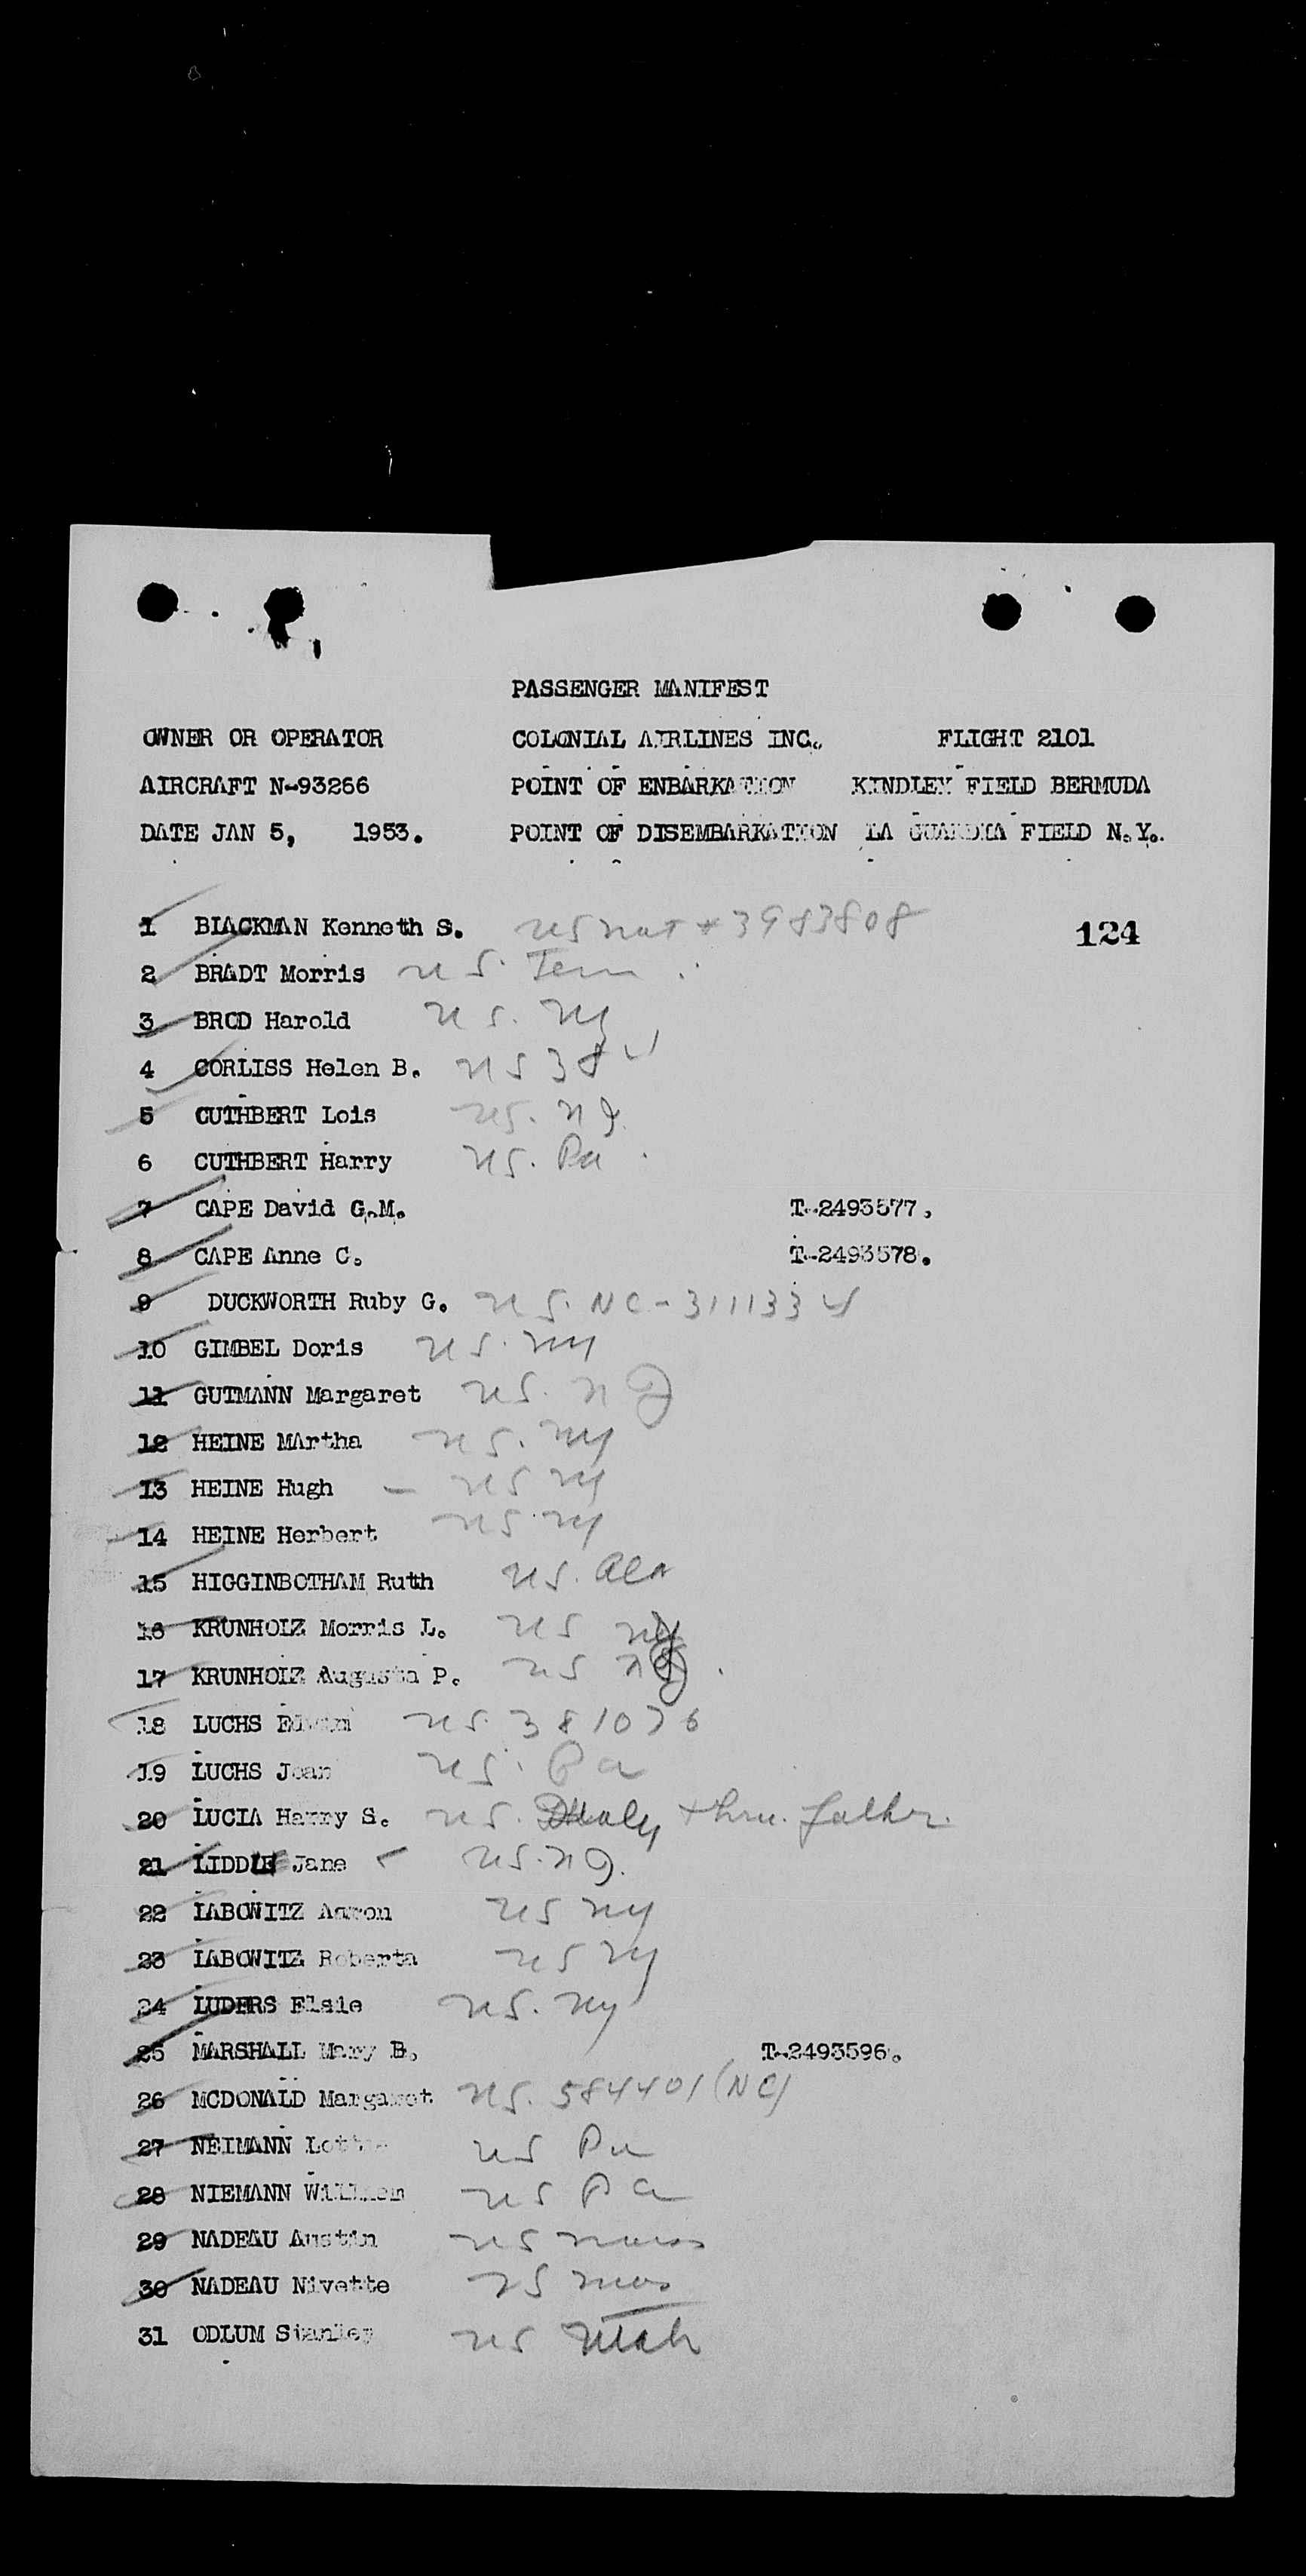 PASSENGER MANIFEST
OWNER OR OPERATOR COLONIAL AIRLINES INC. FLIGHT 2101
AIRCRAFT N-93266 POINT OF ENBARKATION KINDLEY FIELD BERMUDA
DATE JAN 5, 1953. POINT OF DISEMBARKATION LA GUARDIA FIELD N.Y.
1 BLACKMAN Kenneth S. US nat # 3983808 124
2 BRADT Morris US. Tenn.
3 BROD Harold US. NY
4 CORLISS Helen B. US
5 CUTHBERT Lois US. NJ.
6 CUTHBERT Harry US. Pa.
7 CAPE David G.M. T-2493577,
8 CAPE Anne C. T-2493578.
9 DUCKWORTH Ruby G. US. NC-3111334
10 GIMBEL Doris US. NY
11 GUTMANN Margaret US. NJ
12 HEINE MArtha US. NY
13 HEINE Hugh - US NY
14 HEINE Herbert US. NY
15 HIGGINBOTHAM Ruth US. Ala
16 KRUNHOLZ Morris L. US NY
17 KRUNHOLZ Augusta P. US
18 LUCHS US. 381076
19 LUCHS Joan US. Pa
20 LUCIA Harry S. US. thru. father.
21 LIDDLE Jane US. NJ.
22 LABOWITZ Aaron US NY
23 LABOWITZ Roberta US NY
24 LUDERS Elsie US. NY
25 MARSHALL Mary B. T-2493596.
26 MCDONALD Margaret US. 584401 (NC)
27 NEIMANN US Pa
28 NIEMANN US Pa
29 NADEAU Austin US Mass
30 NADEAU Nivette US Mas
31 ODLUM Stanley US Utah